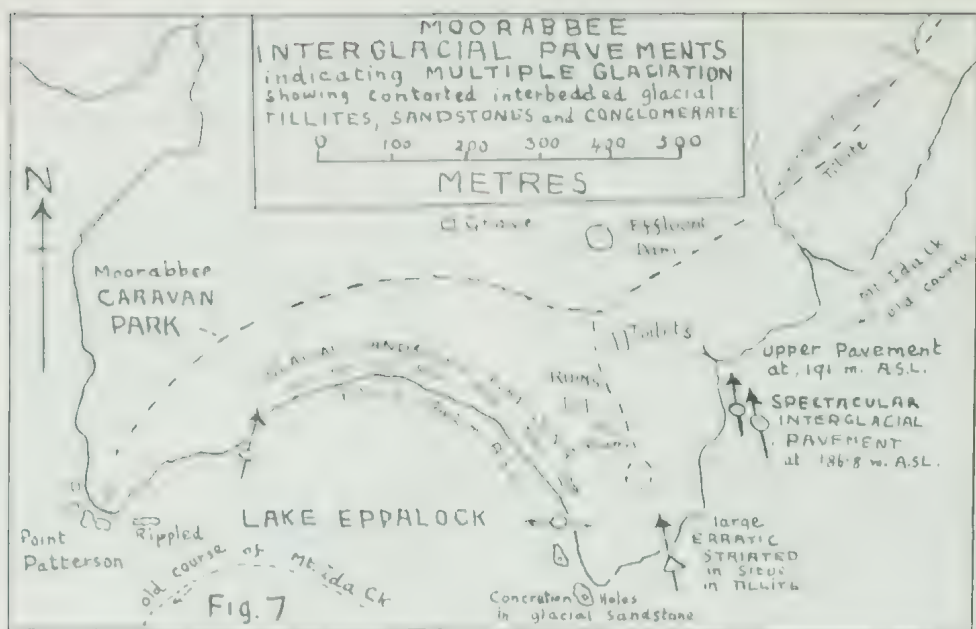 MOORABBEE
INTERGLACIAL PAVEMENTS
indicating MULTIPLE GLACIATION
showing contorted interbedded glacial
TILLITES, SANDSTONES and CONGLOMERATE
0 100 200 300 400 500
METRES
N
Grave
Effluent
Tillite
Mt Ida Ck
old course
Moorabbee
CARAVAN
PARK
Toilets
Ruins
upper Pavement
at 191 m. A.S.L.
SPECTACULAR
INTERGLACIAL
PAVEMENT
at 186.8 m. A.S.L.
LAKE EPPALOCK
Point
Patterson
Rippled
old course of Mt. Ida Ck
large
ERRATIC
STRIATED
in SITUS
in TILLITE
Concretion Holes
in glacial Sandstone
Fig. 7